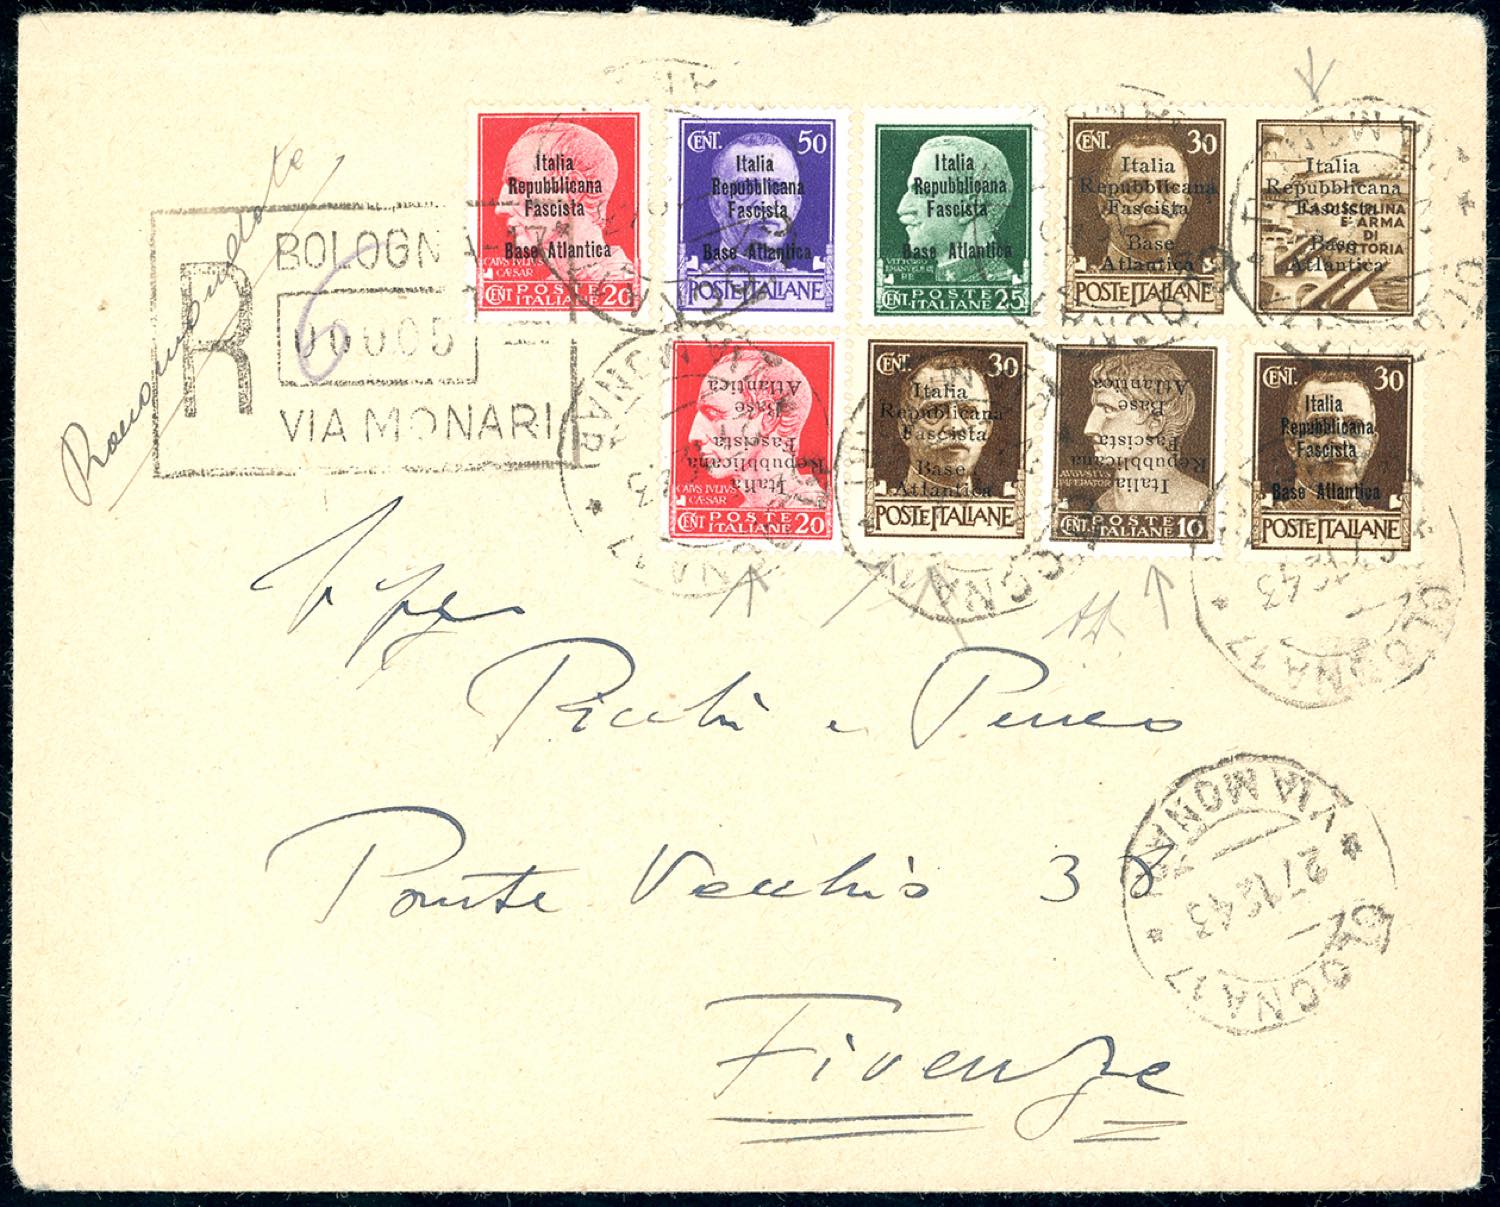 Raccomandata
R
BOLOGNA-17
6
00005
VIA MONARI
Italia
Repubblicana
Fascista
Base Atlantica
CAIVS IVLIVS
CÆSAR
CENT POSTE
ITALIANE 20
CENT. 50
Italia
Repubblicana
Fascista
Base Atlantica
POSTE ITALIANE
Italia
Repubblicana
Fascista
Base Atlantica
CENT. POSTE
ITALIANE 25
CENT. 30
Italia
Repubblicana
Fascista
Base
Atlantica
POSTE ITALIANE
Italia
Repubblicana
Fascista
Base
Atlantica
LA DISCIPLINA
E' ARMA
DI
VITTORIA
Italia
Repubblicana
Fascista
Base
Atlantica
CAIVS IVLIVS
CÆSAR
CENT POSTE
ITALIANE 20
CENT. 30
Italia
Repubblicana
Fascista
Base
Atlantica
POSTE ITALIANE
Italia
Repubblicana
Fascista
Base
Atlantica
AVGVSTVS
IMPERATOR
CENT. POSTE
ITALIANE 10
CENT. 30
Italia
Repubblicana
Fascista
Base Atlantica
POSTE ITALIANE
Ponte Vecchio 38
Firenze
BOLOGNA 17
* VIA MONARI *
27.12.43